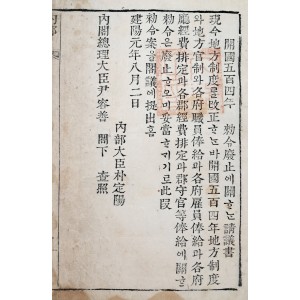 開國五百四年 勅令廢止에關ᄒᆞᄂᆞᆫ請議書
現今地方制度를改正ᄒᆞᄂᆞᆫ바開國五百四年地方制度
와地方官制와各府職員俸給과各府雇員俸給과各府
廳經費排定과各郡經費排定과郡守官等俸給에關ᄒᆞᆫ
勅令은廢止ᄒᆞᆷ이妥當ᄒᆞᆯ기로此段
勅令案을閣議에提出喜
建陽元年八月二日
內部大臣朴定陽
內閣總理大臣尹容善 閣下 査照